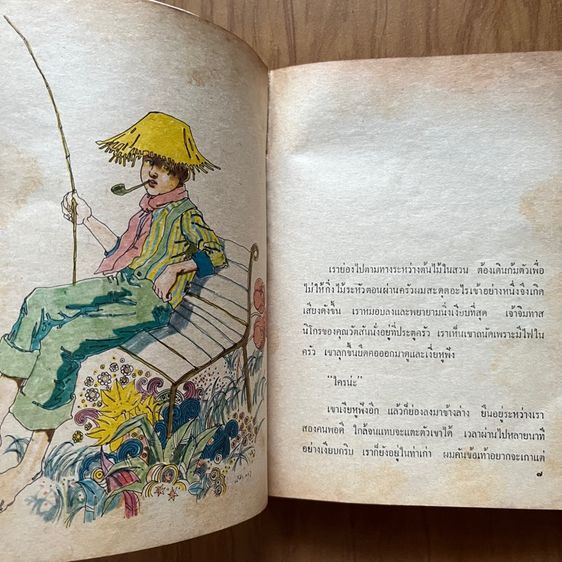 เราย่องไปตามทางระหว่างต้นไม้ในสวน ต้องเดินก้มตัวเพื่อ
ไม่ให้กิ่งไม้ระหัวตอนผ่านครัวผมสะดุดอะไรเข้าอย่างหนึ่งจึงเกิด
เสียงดังขึ้น เราหมอบลงและพยายามนิ่งเงียบที่สุด เจ้าจิมทาส
นิโกรของคุณวัตสันนั่งอยู่ที่ประตูครัว เราเห็นเขาถนัดเพราะมีไฟใน
ครัว เขาลุกขึ้นยืดคอออกมาดูและเงี่ยหูฟัง
"ใครน่ะ"
เขาเงี่ยหูฟังอีก แล้วก็ย่องลงมาข้างล่าง ยืนอยู่ระหว่างเรา
สองคนพอดี ใกล้จนแทบจะแตะตัวเขาได้ เวลาผ่านไปหลายนาที
อย่างเงียบกริบ เราก็ยังอยู่ในท่าเก่า ผมคันข้อเท้าอยากจะเกาแต่
๗